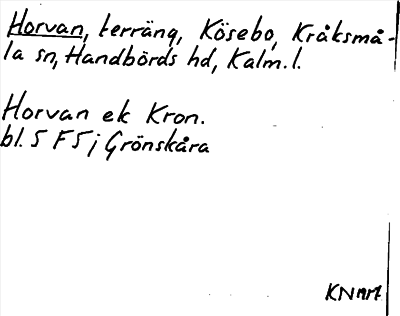 Horvan, terräng, Kösebo, Kråksmå-
la sn, Handbörds hd, Kalm. l.
Horvan ek Kron.
bl. 5 F 5 j Grönskåra